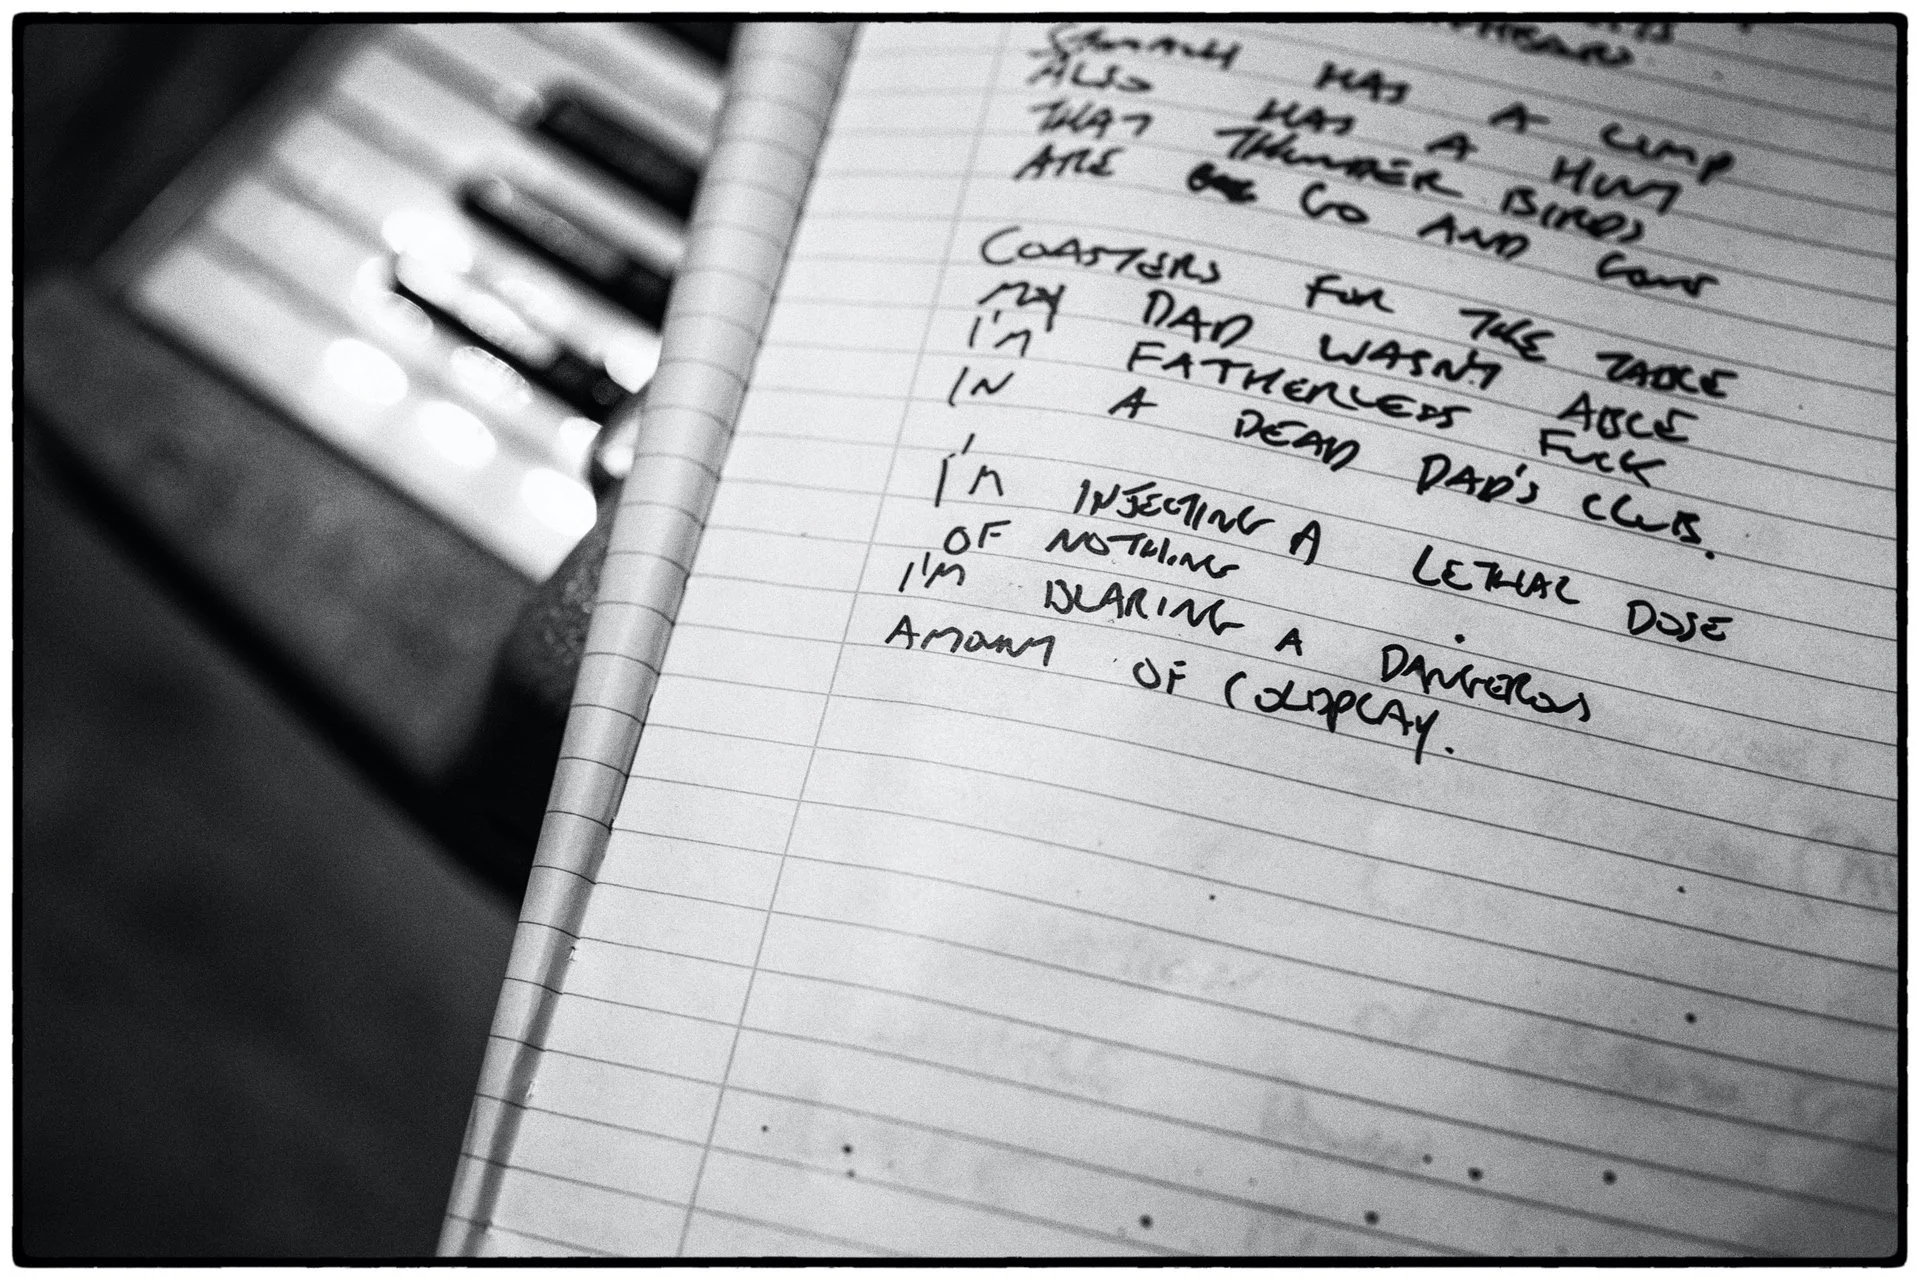 HAS A LIMP
ALSO HAS A HUNT
THAT THUNDER BIRDS
ARE GO AND
COASTERS FOR THE TABLE
MY DAD WASN'T ABLE
I'M FATHERLESS FUCK
IN A DEAD DAD'S CLUB.
I'M INJECTING A LETHAL DOSE
OF NOTHING
I'M BLARING A DANGEROUS
AMOUNT OF COLDPLAY.